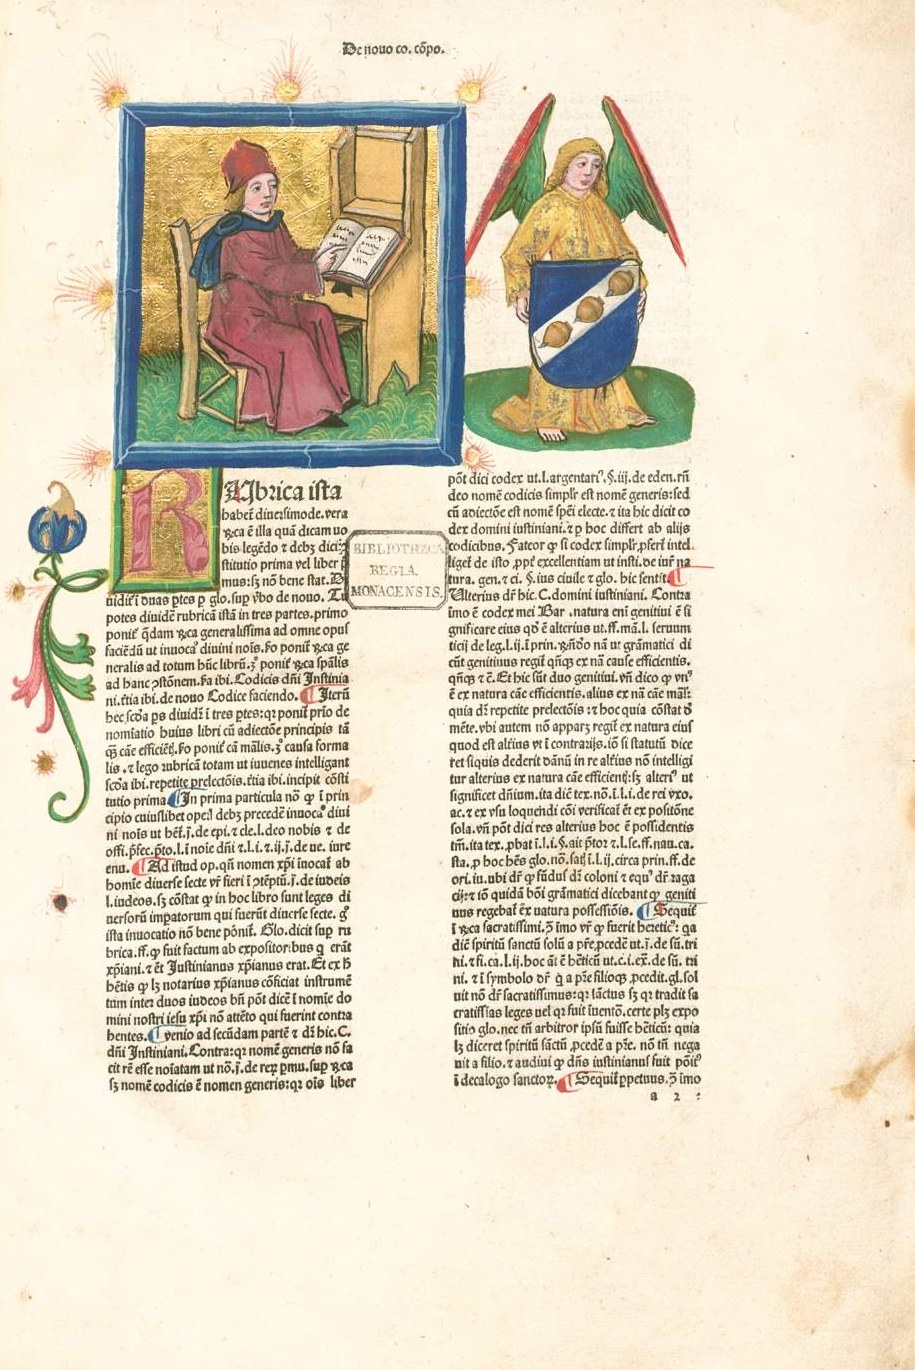 De nouo co. cōpo.
RUbrica ista
habet diuersimode. vera
ꝛca ē illa quā dicam uo
bis legēdo ⁊ debꝫ dici:
stitutio prima vel liber p
mus: sꝫ nō bene stat. D
uidit̄ ī duas ptes p glo. sup ꝟbo de nouo. Tu
potes diuidē rubricā istā in tres partes. primo
ponit qdam ꝛca generalissima ad omne opus
faciēdū ut inuocat diuini nois. ẜo ponit ꝛca ge
neralis ad totum hūc librū. ꝫ ponit ꝛca spālis
ad hanc ꝯstōnem. ẜa ibi. Codicis dñi Justinia
ni. t̄tia ibi. de nouo Codice faciendo. Iterū
hec scōa ps diuidit̄ ī tres ptes: qꝛ ponit prīo de
nomīatio huius libri cū adiectōe principis tā
qꝫ cāe efficiētꝭ. ẜo ponit cā mālis. ꝫ causa forma
lis. ⁊ lego rubricā totam ut iuuenes intelligant
scōa ibi. repetite prelectōis. t̄tia ibi. incipit cōsti
tutio prima In prima particula nō ꝙ ī prin
cipio cuiuslibet opel debꝫ precedē inuocat diui
ni nois ut het̄. j. de epi. ⁊ cle. l. deo nobis ⁊ de
offi. pfec. pto. l. ī noīe dñi ⁊ l. i. ⁊ ij. j. de ue. iure
enu. Ad istud op. qñ nomen xpi inocat ab
homīe diuerse secte vt̄ fieri ī ꝯtēptū. j. de iudeis
l. iudeos. sꝫ cōstat ꝙ in hoc libro sunt leges di
uersorū impatorum qui fuerūt diuerse secte. g̊
ista inuocatio nō bene pōnit. Glo. dicit sup ru
brica. ff. ꝙ fuit factum ab expositoribus q̄ erāt
xpiani. ⁊ ēt Justinianus xpianus erat. Et ex h̄
hētis ꝙ lꝫ notarius xpianus cōficiat instrumē
tum inter duos iudeos bñ pōt dicē ī nomīe do
mini nostri iesu xpi nō attēto qui fuerint contra
hentes. Uenio ad secūdam partē ⁊ dꝛ hic. C.
dñi Instiniani. Contra: qꝛ nomē generis nō fa
cit rē esse noīatam ut nō. j. de reꝝ pmu. sup ꝛca
sꝫ nomē codicis ē nomen generis: qꝛ oīs liber
BIBLIOTHECA
REGIA
MONACENSIS.
pōt dici codex ut. l. argentari. §. iij. de eden. rñ
deo nomē codicis simplr est nomē generis: sed
cū adiectōe est nomē spēi electe. ⁊ ita hic dicit co
dex domini iustiniani. ⁊ p hoc differt ab alijs
codicibus. Fateor ꝙ si codex simplr, pfert̄ intel
liget̄ de isto, ppt̄ excellentiam ut insti. de iur̄ na
tura. gen. ⁊ ci. §. ius ciuile ⁊ glo. hic sentit
Ulterius dꝛ hic. C. domini iustiniani. Contra
imo ē codex mei Bar. natura eni genitiui ē si
gnificare eius qd̄ ē alterius ut. ff. mā. l. seruum
ticij de leg. l. ij. ī prin. ꝛñdō nā ut grāmatici di
cūt genitinus regit̄ qñqꝫ ex nā cause efficientis.
qñqꝫ ⁊ ē. Et hic sūt duo genitiui. vñ dico ꝙ vn
ē ex natura cāe efficiētis. alius ex nā cāe māl:
quia dꝛ repetite prelectōis: ⁊ hoc quia cōstat d̄
mēte. vbi autem nō apparꝫ regit̄ ex natura eius
quod est alt̄ius vt ī contrarijs. iō si statutū dice
ret siquis dederit dānū in re alt̄ius nō intelligi
tur alterius ex natura cāe efficientꝭ: sꝫ alteri ut
significet dñium. ita diē tex. nō. ī l. i. de rei vxo.
ac. ⁊ ex vsu loquendi cōi verificat̄ ēt ex positōne
sola. vñ pōt dici res alterius hoc ē possidentis
tm̄. ita tex. pbat ī. l. i. §. ait ptor ⁊ l. se. ff. nau. ca.
sta. p hoc hēs glo. nō. satꝭ ī l. ij. circa prin. ff. de
ori. iu. ubi dꝛ ꝙ fūdus dr̄ coloni ⁊ equ dꝛ raga
cij: ⁊ iō quidā boi grāmatici dicebant ꝙ geniti
uus regebat̄ ex natura possessiōis. Sequit̄
ī ꝛca sacratissimi. ꝯ īmo vr̄ ꝙ fuerit heretic: qa
dic̄ spiritū sanctū solū a pr̄e, pcedē ut. j. de sū. tri
ni. ⁊ fi. ca. l. ij. hoc aūt ē hēticū ut. c. i. ex. de sū. tri
ni. ⁊ ī symbolo dꝛ q̄ a pr̄e filioqꝫ, pcedit. gl. sol
uit nō dꝛ sacratissimus: qꝛ sāctus sꝫ qꝛ tradit sa
cratissias leges uel qꝛ fuit īuentō. certe plꝫ expo
sitio glo. nec tñ arbitror ipsū fuisse hēticū: quia
lꝫ diceret spiritū sāctū, pcedē a pr̄e. nō tñ nega
uit a filio. ⁊ audiui ꝙ dñs iustinianus fuit pōit
ī decalogo sanctoꝝ. Sequit̄ ppetuus. ꝯ īmo
a 2